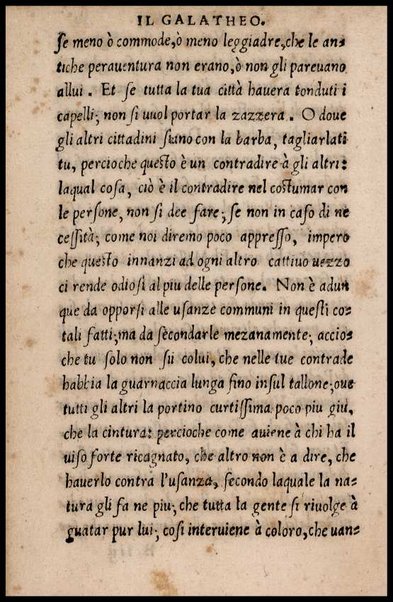 IL GALATHEO.
se meno ò commode, ò meno leggiadre, che le an-
tiche perauentura non erano, ò non gli pareuano
allui. Et se tutta la tua città hauera tonduti i
capelli; non si vuol portar la zazzera. O doue
gli altri cittadini siano con la barba, tagliarlati
tu, percioche questo è un contradire à gli altri:
laqual cosa, ciò è il contradire nel costumar con
le persone, non si dee fare; se non in caso di ne
cessità; come noi diremo poco appresso, impero
che questo innanzi ad ogni altro cattiuo uezzo
ci rende odiosi al piu delle persone. Non è adun
que da opporsi alle usanze communi in questi co-
tali fatti; ma da secondarle mezanamente; accio-
che tu solo non sii colui, che nelle tue contrade
habbia la guarnaccia lunga fino insul tallone; oue
tutti gli altri la portino curtissima poco piu giu,
che la cintura: percioche come auiene à chi ha il
uiso forte ricagnato, che altro non è a dire, che
hauerlo contra l'usanza, secondo laquale la na-
tura gli fa ne piu; che tutta la gente si riuolge à
guatar pur lui; cosi interuiene à coloro, che uan-